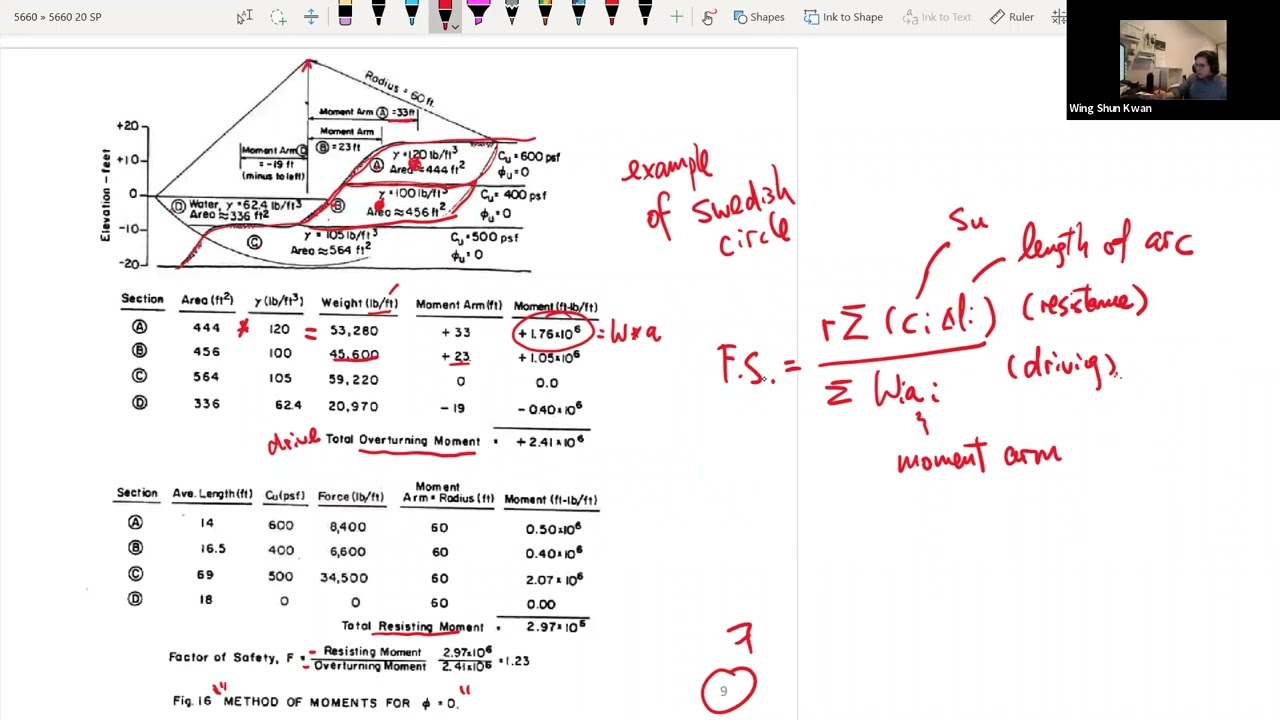 5660 » 5660 20 SP
Shapes
Ink to Shape
Ink to Text
Ruler
Wing Shun Kwan
Radius = 60 ft.
Moment Arm Ⓐ = 33 ft
Moment Arm
Ⓑ = 23 ft
Moment Arm Ⓓ
= -19 ft
(minus to left)
Elevation - feet
+20
+10
0
-10
-20
Ⓐ
γ = 120 lb/ft³
Area ≈ 444 ft²
Cu = 600 psf
φu = 0
Ⓑ
γ = 100 lb/ft³
Area ≈ 456 ft²
Cu = 400 psf
φu = 0
Ⓓ Water, γ = 62.4 lb/ft³
Area ≈ 336 ft²
Ⓒ
γ = 105 lb/ft³
Area ≈ 564 ft²
Cu = 500 psf
φu = 0
Section Area (ft²) γ (lb/ft³) Weight (lb/ft) Moment Arm (ft) Moment (ft-lb/ft)
Ⓐ 444 * 120 = 53,280 + 33 + 1.76x10⁶ = W*a
Ⓑ 456 100 45,600 + 23 + 1.05x10⁶
Ⓒ 564 105 59,220 0 0.0
Ⓓ 336 62.4 20,970 - 19 - 0.40x10⁶
drive Total Overturning Moment = + 2.41x10⁶
Section Ave. Length (ft) Cu (psf) Force (lb/ft) Moment Arm = Radius (ft) Moment (ft-lb/ft)
Ⓐ 14 600 8,400 60 0.50x10⁶
Ⓑ 16.5 400 6,600 60 0.40x10⁶
Ⓒ 69 500 34,500 60 2.07x10⁶
Ⓓ 18 0 0 60 0.00
Total Resisting Moment = 2.97x10⁶
Factor of Safety, F = Resisting Moment / Overturning Moment 2.97x10⁶ / 2.41x10⁶ = 1.23
Fig. 16 "METHOD OF MOMENTS FOR φ = 0."
example
of Swedish
circle
Su
length of arc
F.S. = r Σ (ci Δli) / Σ Wi ai
(resistance)
(driving)
moment arm
7
9